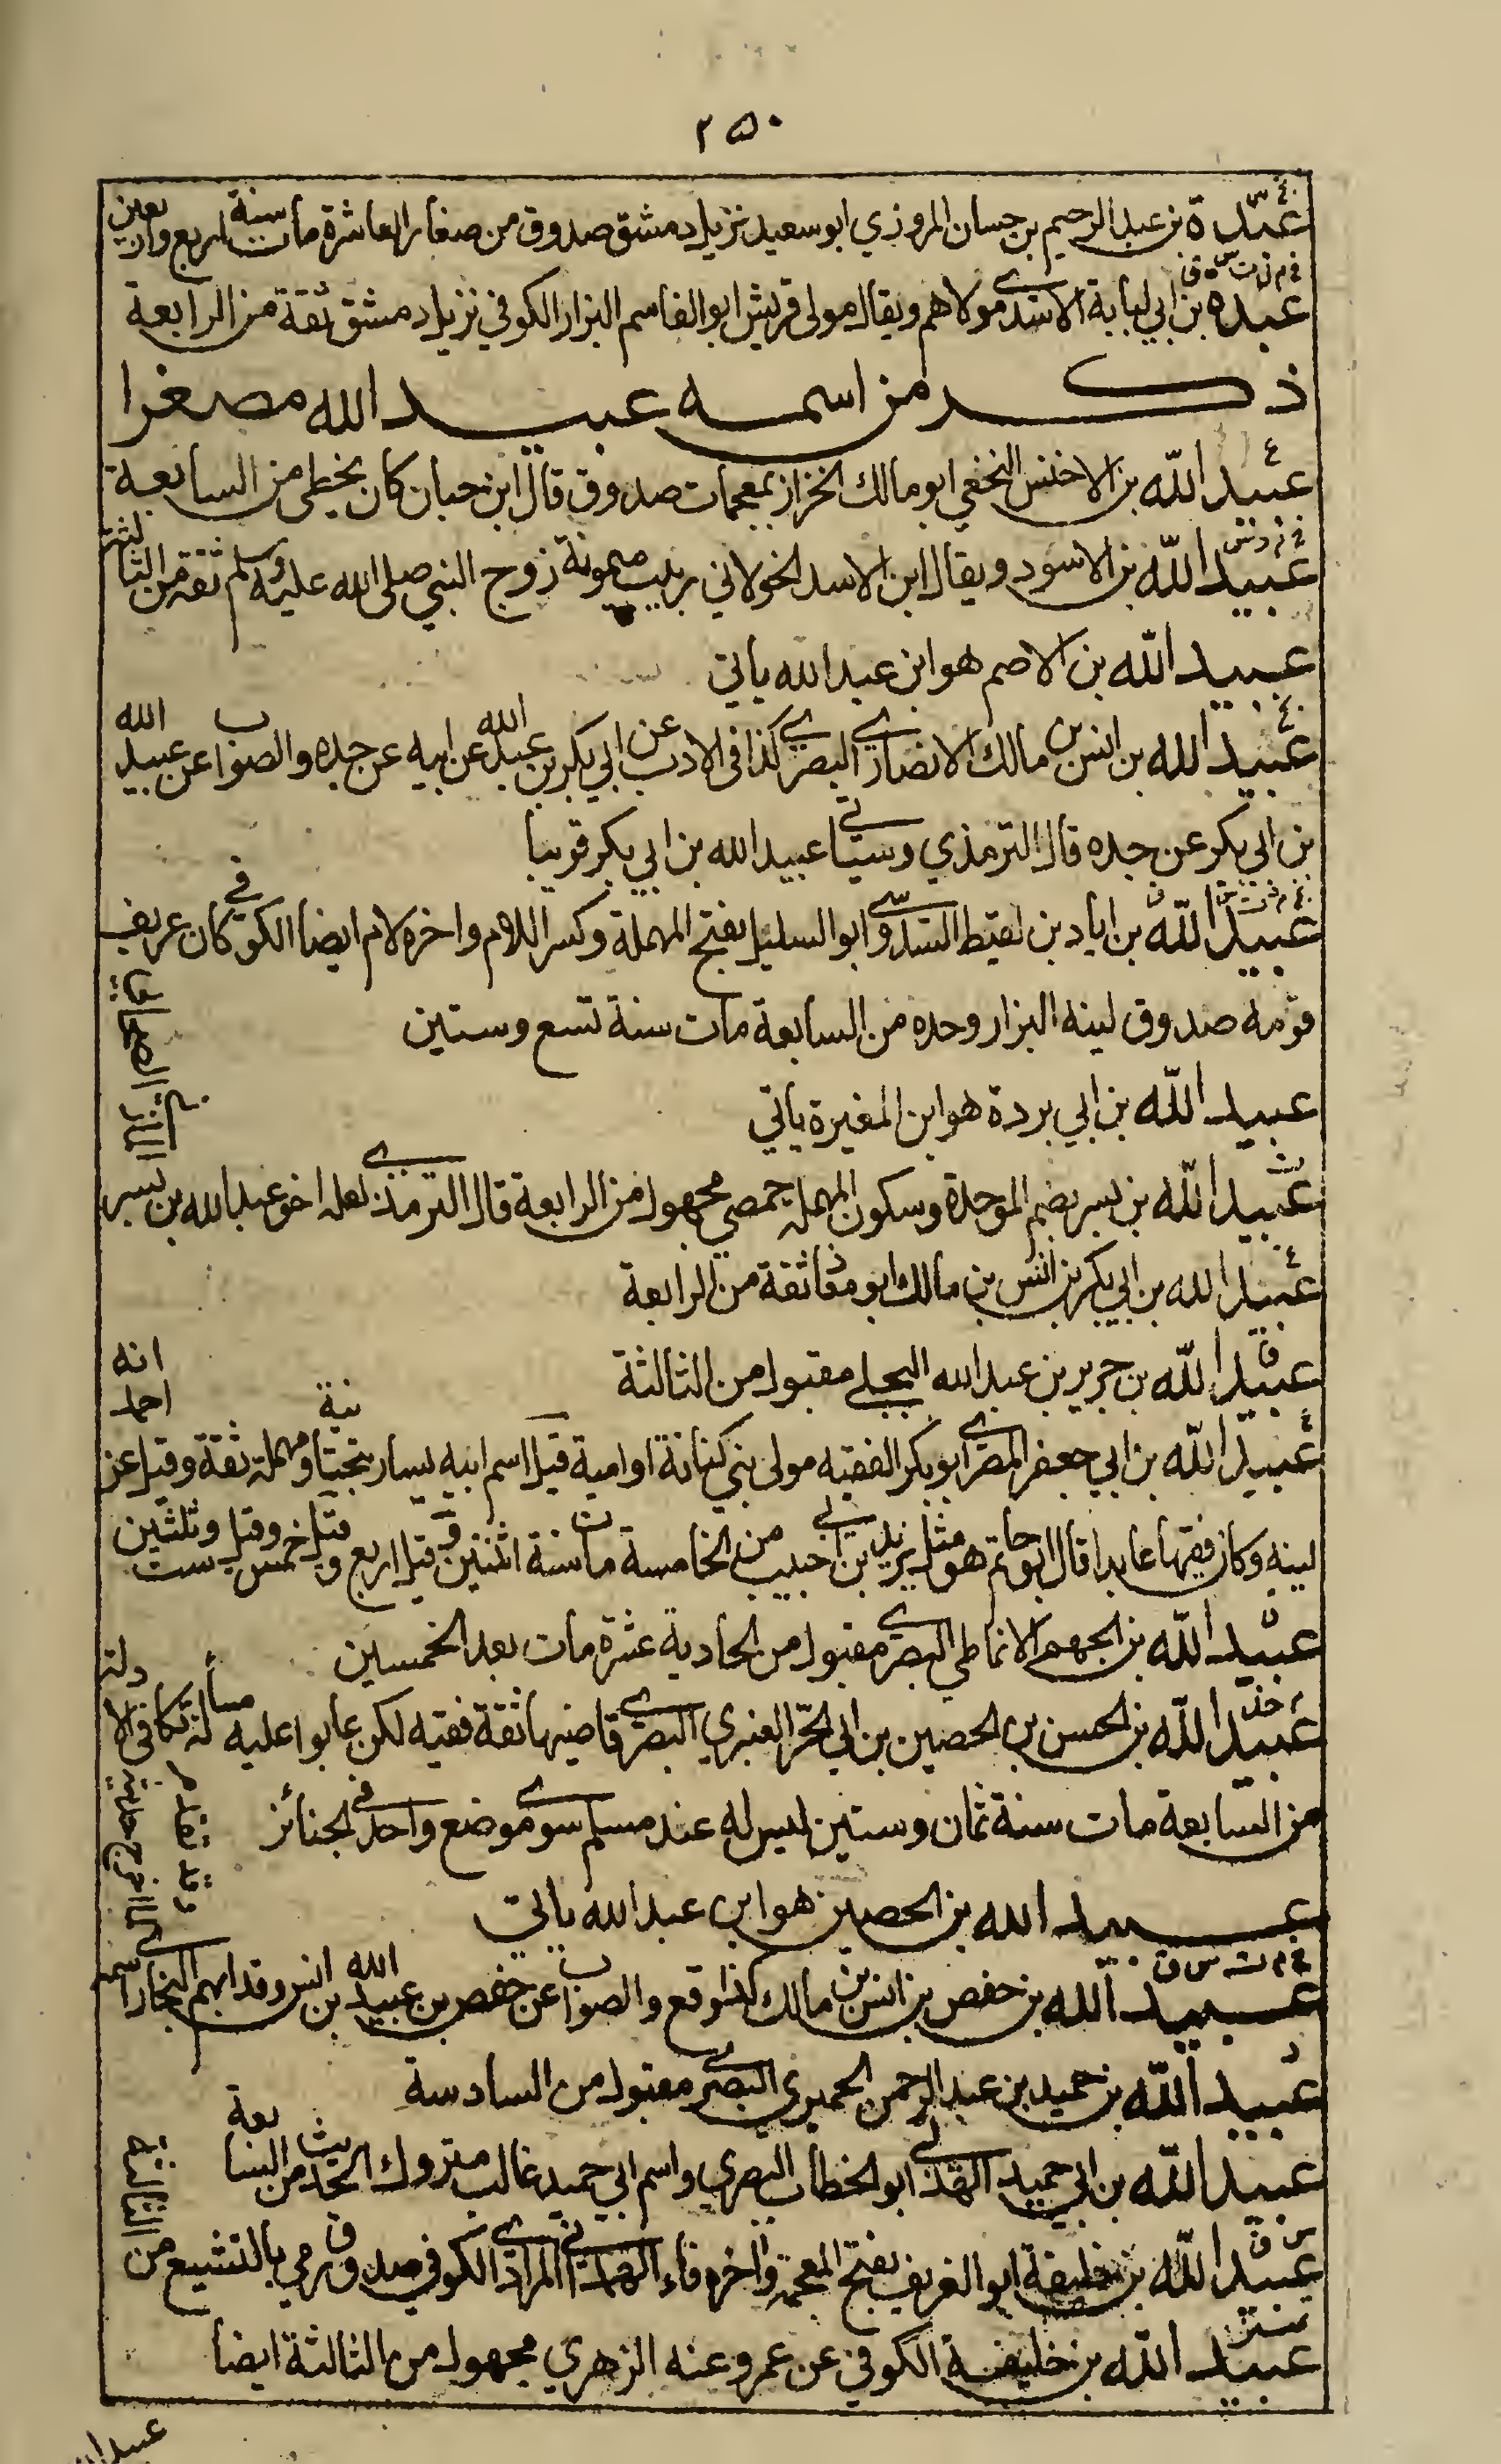 ٢٥٠
عبدة بن عبد الرحيم بن حسان المروزي ابو سعيد نزيل دمشق صدوق من صغار العاشرة مات سنة اربع واربعين
عبدة بن ابي لبابة الاسدي مولاهم ويقال مولى قريش ابو القاسم البزاز الكوفي نزيل دمشق ثقة من الرابعة
ذكر من اسمه عبيد الله مصغرا
عبيد الله بن الاخنس النخعي ابو مالك الخزاز بمعجمات صدوق قال ابن حبان كان يخطئ من السابعة
عبيد الله بن الاسود ويقال ابن الاسد الخولاني ربيب ميمونة زوج النبي صلى الله عليه وسلم ثقة من الثالثة
عبيد الله بن الاصم هو ابن عبد الله ياتي
عبيد الله بن انس بن مالك الانصاري البصري كذا في الادب عن ابي بكر بن عبيد الله عن ابيه عن جده والصواب عن عبيد الله
بن ابي بكر عن جده قال الترمذي وسياتي عبيد الله بن ابي بكر قريبا
عبيد الله بن اياد بن لقيط السدوسي ابو السليل بفتح المهملة وكسر اللام واخره لام ايضا الكوفي كان عريف
قومه صدوق لينه البزار وحده من السابعة مات سنة تسع وستين
عبيد الله بن ابي بردة هو ابن المغيرة ياتي
عبيد الله بن بسر بضم الموحدة وسكون المهملة حمصي مجهول من الرابعة قال الترمذي لعله اخو عبد الله بن بسر
المازني الصحابي
عبيد الله بن ابي بكر بن انس بن مالك ابو معاذ ثقة من الرابعة
عبيد الله بن جرير بن عبد الله البجلي مقبول من الثالثة
عبيد الله بن ابي جعفر المصري ابو بكر الفقيه مولى بني كنانة او امية قيل اسم ابيه يسار بتحتانية ومهملة ثقة وقيل عن احمد انه
لينه وكان فقيها عابدا قال ابو حاتم هو مثل يزيد بن ابي حبيب من الخامسة مات سنة اثنتين وقيل اربع وقيل خمس وقيل ست وثلثين
عبيد الله بن الجهم الانماطي البصري مقبول من الحادية عشرة مات بعد الخمسين
عبيد الله بن الحسن بن الحصين بن ابي الحر العنبري البصري قاضيها ثقة فقيه لكن عابوا عليه مسألة تكافي الادلة
من السابعة مات سنة ثمان وستين ليس له عند مسلم سوى موضع واحد في الجنائز
عبيد الله بن الحصين هو ابن عبد الله ياتي
عبيد الله بن حفص بن انس بن مالك كذا وقع والصواب عن حفص بن عبيد الله بن انس وقد ابهم البخاري اسمه
عبيد الله بن حميد بن عبد الرحمن الحميري البصري مقبول من السادسة
عبيد الله بن ابي حميد الهذلي ابو الخطاب البصري واسم ابي حميد غالب متروك الحديث من السابعة
عبيد الله بن خليفة ابو الغريف بفتح المعجمة واخره فاء الهمداني المرادي الكوفي صدوق رمي بالتشيع من الثالثة
عبيد الله بن خليفة الكوفي عن عمر وعنه الزهري مجهول من الثالثة ايضا